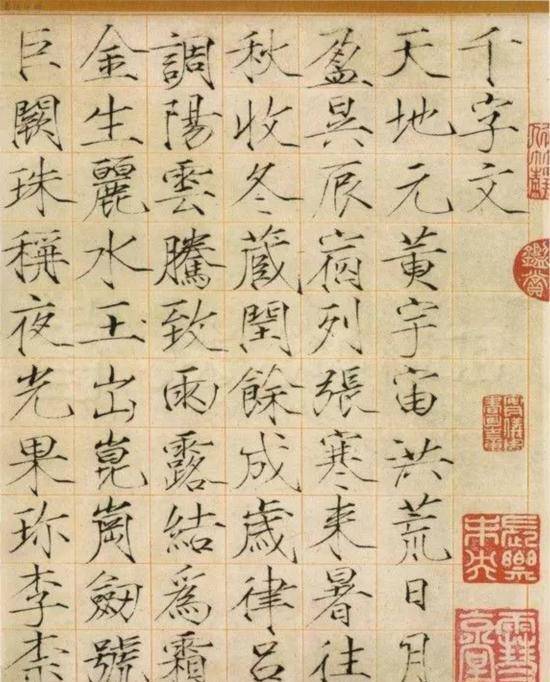 千字文
天地元黃宇宙洪荒日月
盈昃辰宿列張寒来暑往
秋收冬蔵閏餘成歲律吕
調陽雲騰致雨露結爲霜
金生麗水玉出崑崗劒號
巨闕珠稱夜光果珎李柰
鑑賞
長樂未央